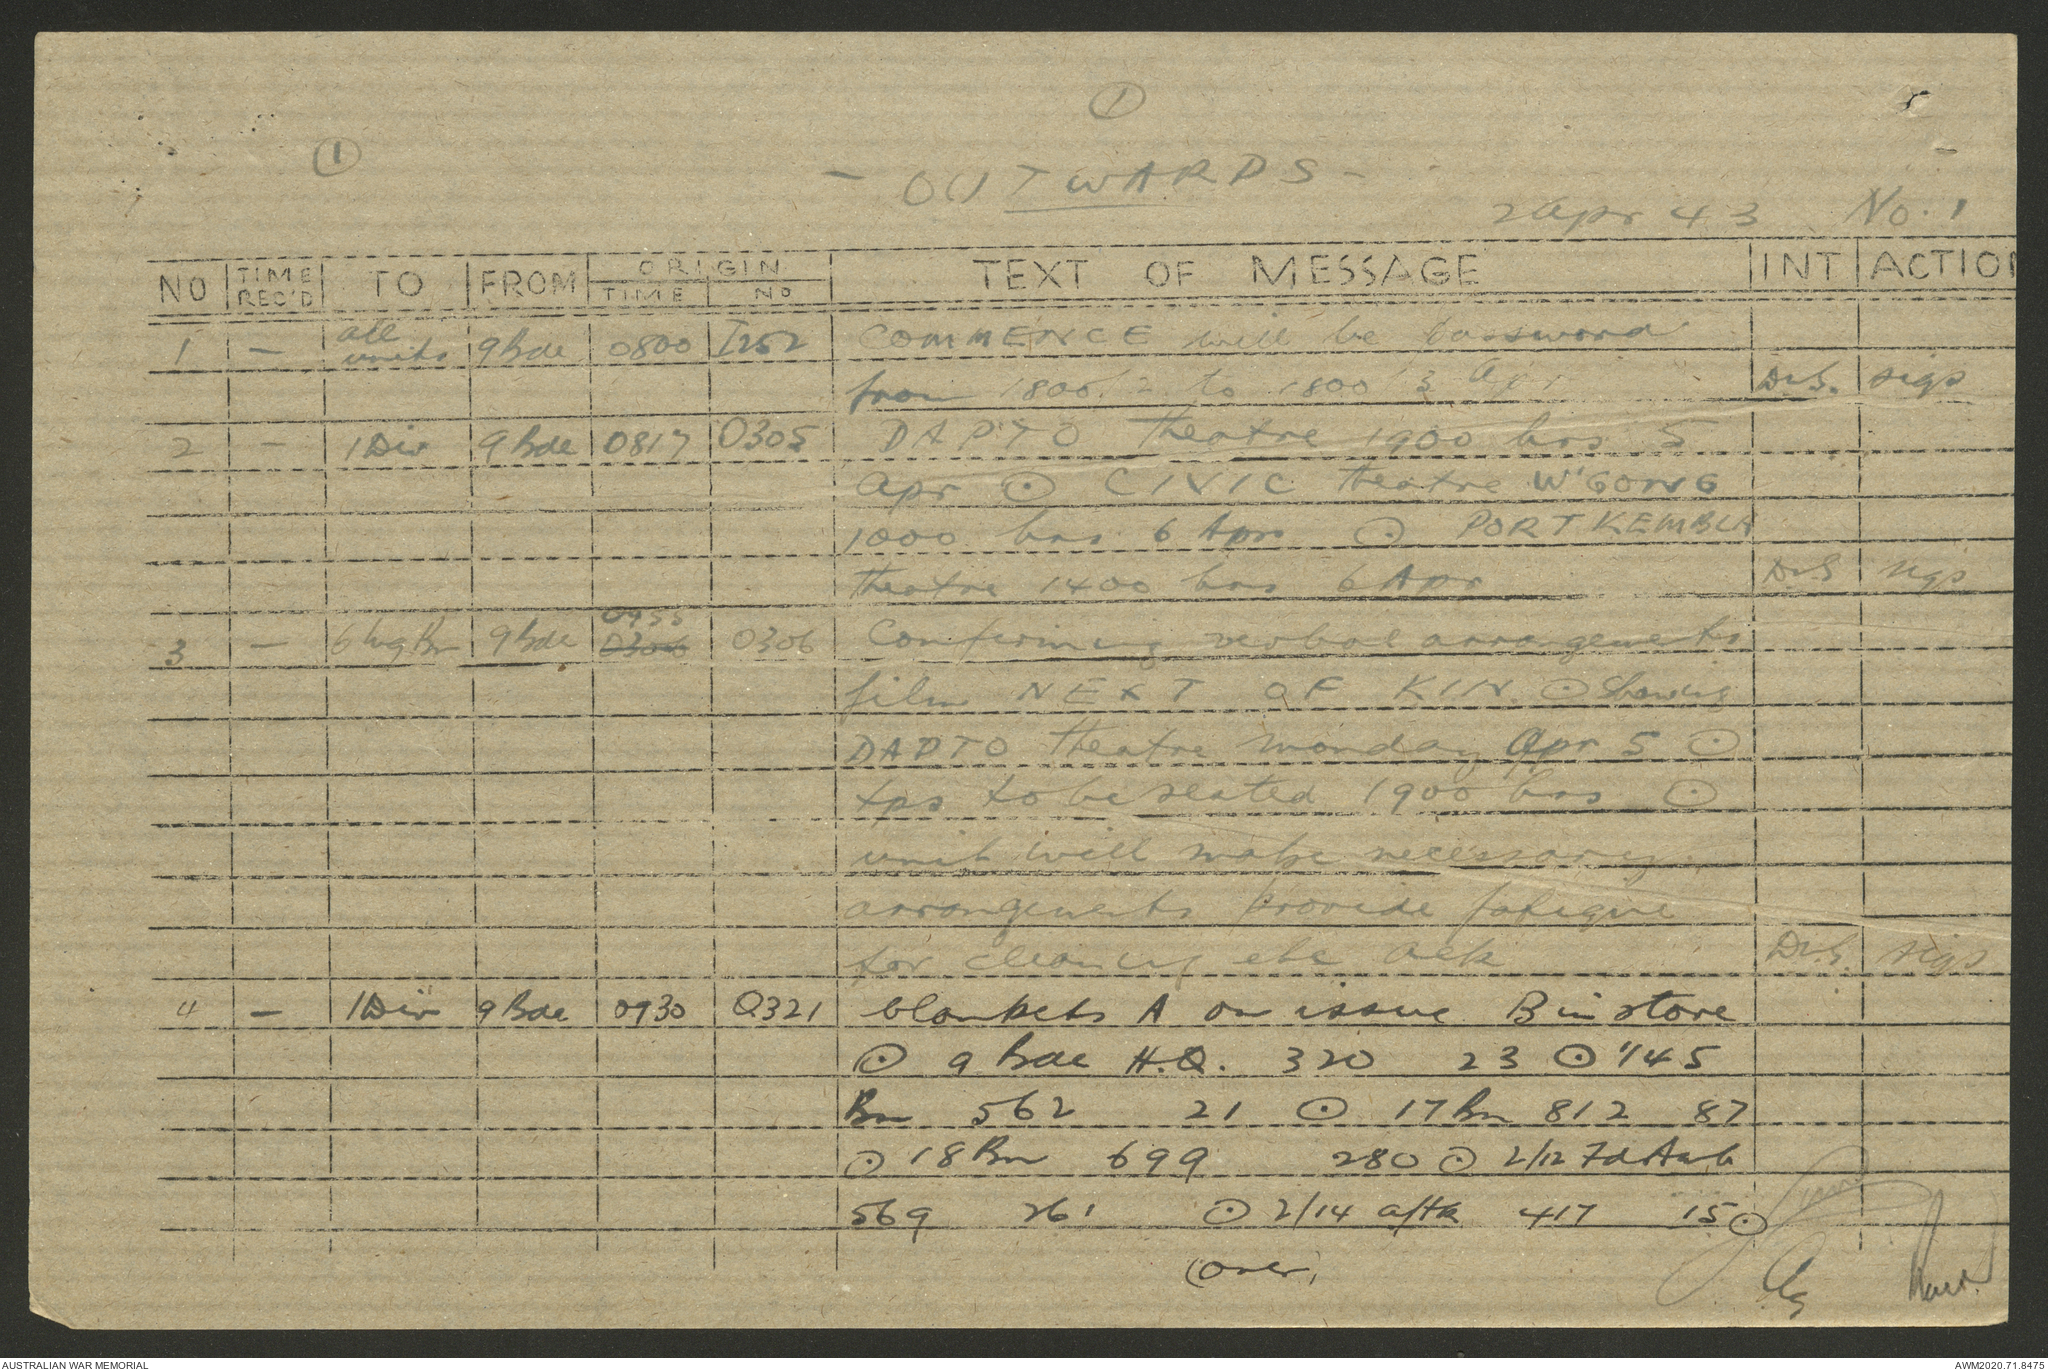 ①
①
- OUTWARDS -
2 Apr 43 No. 1
NO | TIME REC'D | TO | FROM | ORIGIN TIME | ORIGIN NO | TEXT OF MESSAGE | INT | ACTION
1 | - | all units | 9 Bde | 0800 | I252 | COMMENCE will be password
from 1800 2 to 1800 3 Apr | DvS. | sigs
2 | - | 1 Div | 9 Bde | 0817 | O305 | DAPTO theatre 1900 hrs 5
Apr ⊙ CIVIC theatre W'GONG
1000 hrs 6 Apr ⊙ PORT KEMBLA
theatre 1400 hrs 6 Apr | DvS | sigs
3 | - | 9 Bde | 0306 | O306 | Confirming verbal arrangements
film NEXT OF KIN ⊙ Showing
DAPTO theatre Monday Apr 5 ⊙
tps to be seated 1900 hrs ⊙
unit will make necessary
arrangements provide fatigue
for cleaning etc ack | DvS. | sigs
4 | - | 1 Div | 9 Bde | 0930 | Q321 | blankets A on issue B in store
⊙ 9 Bde H.Q. 320 23 ⊙ 1/45
Bn 562 21 ⊙ 17 Bn 812 87
⊙ 18 Bn 699 280 ⊙ 2/12 Fd Amb
569 261 ⊙ 2/14 a/tk 417 15 ⊙
(over)
AUSTRALIAN WAR MEMORIAL
AWM2020.71.8475